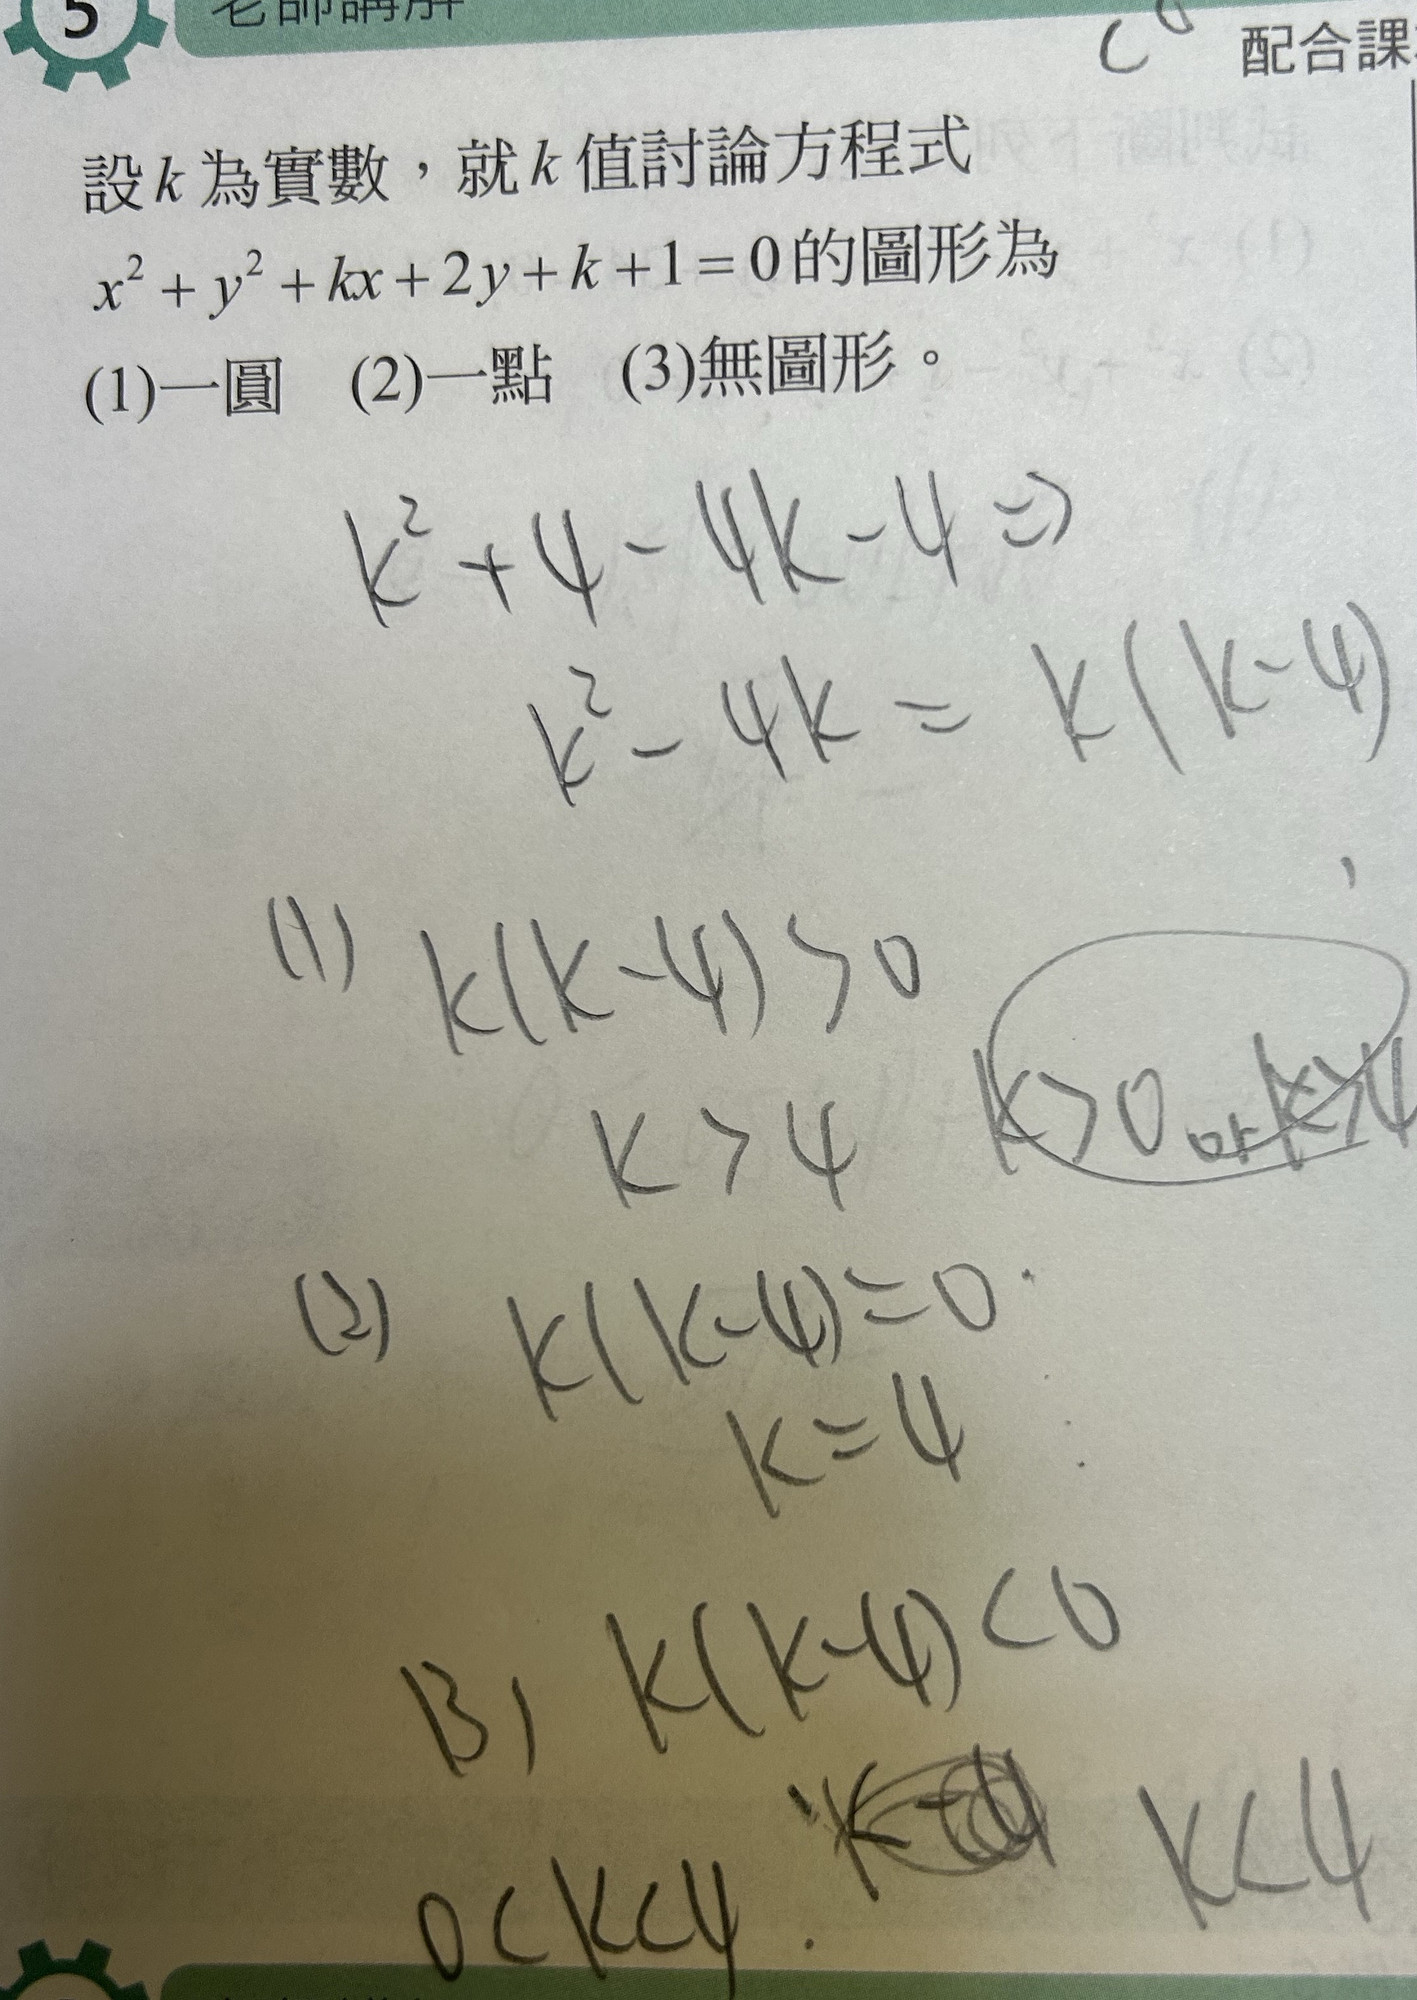 5 老師講解
配合課
設k為實數，就k值討論方程式
x²+y²+kx+2y+k+1=0的圖形為
(1)一圓 (2)一點 (3)無圖形。
k²+4-4k-4⇒
k²-4k=k(k-4)
(1) k(k-4)>0
k>4 k>0 or k>4
(2) k(k-4)=0
k=4
(3) k(k-4)<0
k<4
0<k<4